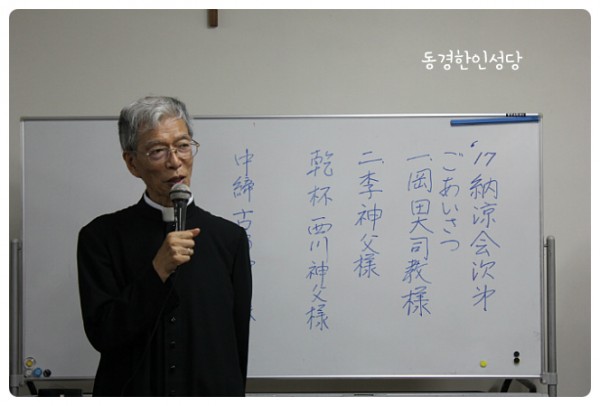 동경한인성당
'17 納涼会次第
ごあいさつ
一. 岡田大司教様
二. 李神父様
乾杯 西川神父様
中締 古